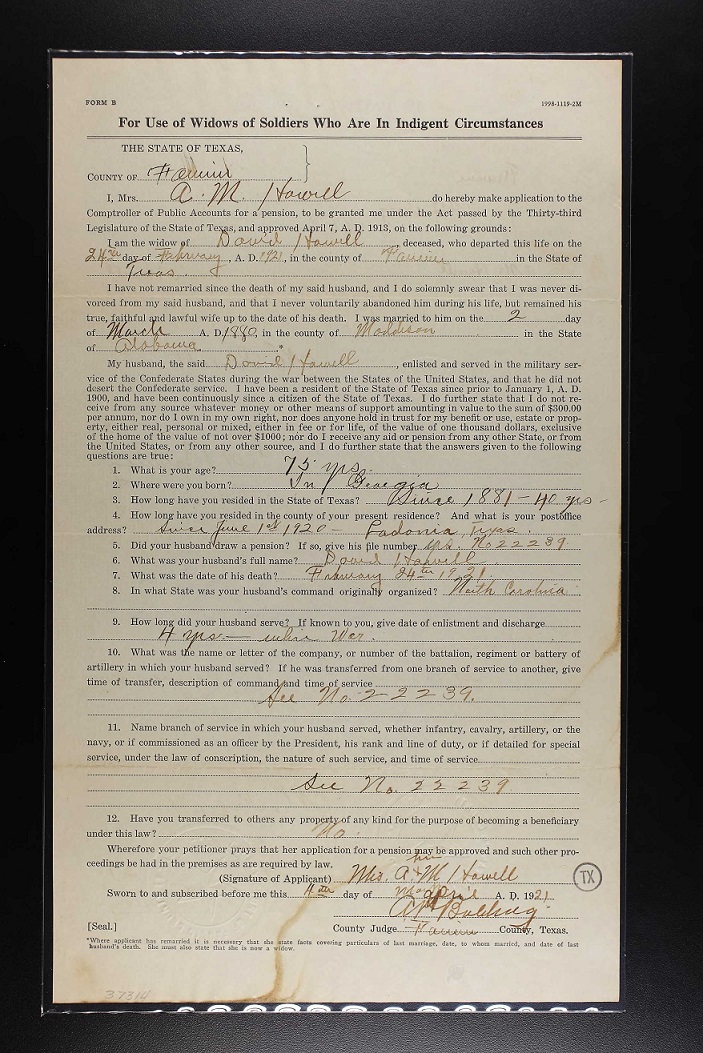 FORM B
1998-1119-2M
For Use of Widows of Soldiers Who Are In Indigent Circumstances
THE STATE OF TEXAS,
COUNTY OF Fannin
I, Mrs. A. M. Howell do hereby make application to the
Comptroller of Public Accounts for a pension, to be granted me under the Act passed by the Thirty-third
Legislature of the State of Texas, and approved April 7, A. D. 1913, on the following grounds:
I am the widow of David Howell, deceased, who departed this life on the
24th day of February, A. D. 1921, in the county of Fannin in the State of
Texas.
I have not remarried since the death of my said husband, and I do solemnly swear that I was never di-
vorced from my said husband, and that I never voluntarily abandoned him during his life, but remained his
true, faithful and lawful wife up to the date of his death. I was married to him on the 2 day
of March A. D. 1880, in the county of Maddison in the State
of Alabama.*
My husband, the said David Howell, enlisted and served in the military ser-
vice of the Confederate States during the war between the States of the United States, and that he did not
desert the Confederate service. I have been a resident of the State of Texas since prior to January 1, A. D.
1900, and have been continuously since a citizen of the State of Texas. I do further state that I do not re-
ceive from any source whatever money or other means of support amounting in value to the sum of $300.00
per annum, nor do I own in my own right, nor does anyone hold in trust for my benefit or use, estate or prop-
erty, either real, personal or mixed, either in fee or for life, of the value of one thousand dollars, exclusive
of the home of the value of not over $1000; nor do I receive any aid or pension from any other State, or from
the United States, or from any other source, and I do further state that the answers given to the following
questions are true:
1. What is your age? 75 yrs.
2. Where were you born? In Georgia
3. How long have you resided in the State of Texas? Since 1881 - 40 yrs -
4. How long have you resided in the county of your present residence? And what is your postoffice
address? Since June 1st 1920 - Ladonia, Texas.
5. Did your husband draw a pension? If so, give his file number yes. No 22239.
6. What was your husband's full name? David Howell
7. What was the date of his death? February 24th 1921
8. In what State was your husband's command originally organized? North Carolina
9. How long did your husband serve? If known to you, give date of enlistment and discharge
4 yrs - War.
10. What was the name or letter of the company, or number of the battalion, regiment or battery of
artillery in which your husband served? If he was transferred from one branch of service to another, give
time of transfer, description of command and time of service
See No. 22239.
11. Name branch of service in which your husband served, whether infantry, cavalry, artillery, or the
navy, or if commissioned as an officer by the President, his rank and line of duty, or if detailed for special
service, under the law of conscription, the nature of such service, and time of service
See No. 22239
12. Have you transferred to others any property of any kind for the purpose of becoming a beneficiary
under this law? No.
Wherefore your petitioner prays that her application for a pension may be approved and such other pro-
ceedings be had in the premises as are required by law.
her
(Signature of Applicant) Mrs. A x M Howell
Sworn to and subscribed before me this day of April A. D. 1921
TX
[Seal.]
County Judge Fannin County, Texas.
*Where applicant has remarried it is necessary that she state facts covering particulars of last marriage, date, to whom married, and date of last
husband's death. She must also state that she is now a widow.
37314